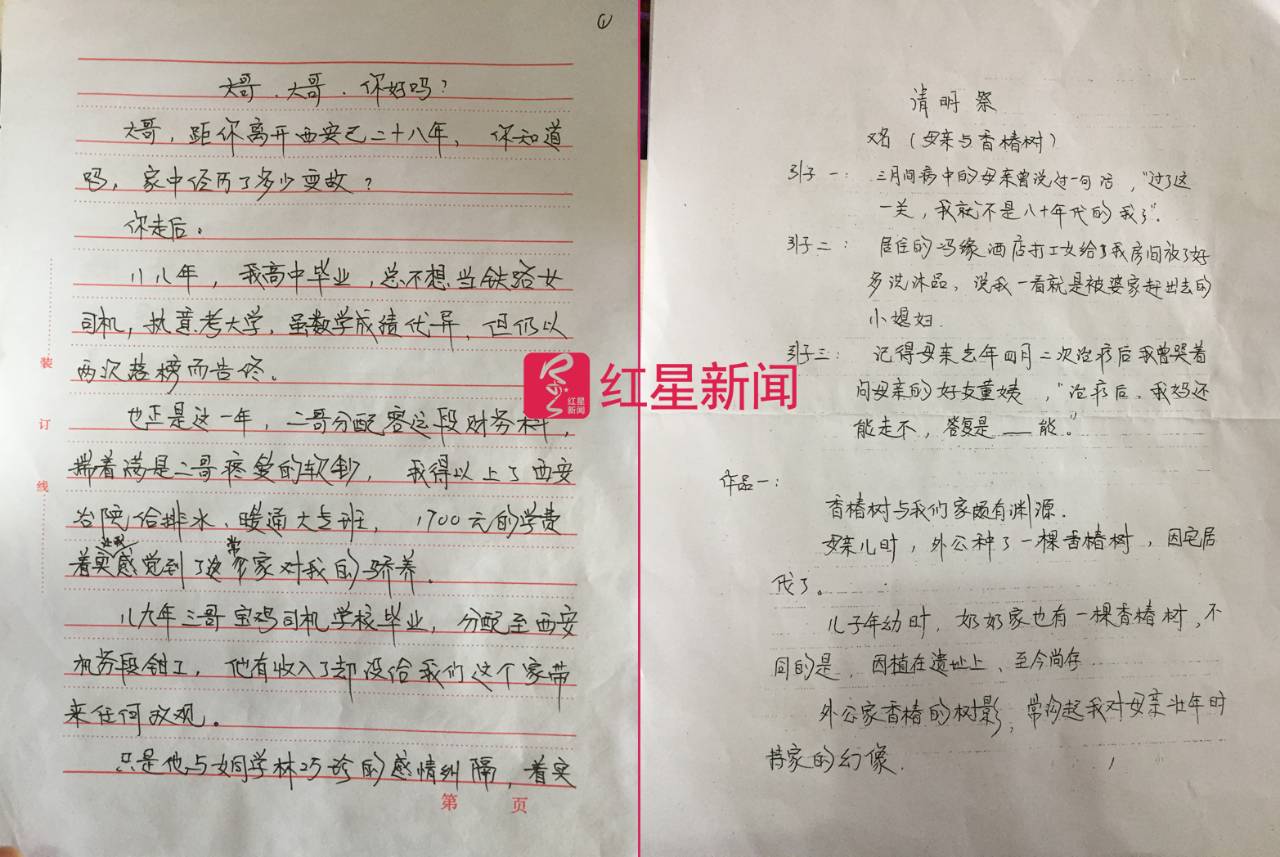 ①
大哥、大哥、你好吗?
大哥,距你离开西安已二十八年,你知道
吗,家中经历了多少变故?
你走后。
八八年,我高中毕业,总不想当铁路女
司机,执意考大学,虽数学成绩优异,但仍以
两次落榜而告终。
也正是这一年,二哥分配客运段财务科,
揣着满是二哥疼爱的软钞,我得以上了西安
冶院给排水、暖通大专班,1700元的学费
着实感觉到了这个家对我的骄养。
八九年三哥宝鸡司机学校毕业,分配至西安
机务段钳工,他有收入了却没给我们这个家带
来任何改观。
只是他与女同学林巧珍的感情纠隔,着实
第 页
装
订
线
红星新闻
红星新闻
清明祭
又名(母亲与香椿树)
引子一:三月间病中的母亲曾说过一句话,“过了这
一关,我就不是八十年代的我了”。
引子二:居住的冯缘酒店打工女给了我房间放了好
多洗沐品,说我一看就是被婆家赶出去的
小媳妇.
引子三:记得母亲去年四月二次治疗后我曾哭着
问母亲的好友董姨,“治疗后,我妈还
能走不,答复是——能。”
作品一:
香椿树与我们家颇有渊源.
母亲儿时,外公种了一棵香椿树,因宅居
伐了。
儿子年幼时,奶奶家也有一棵香椿树,不
同的是,因植在遗址上、至今尚存
外公家香椿的树影,常勾起我对母亲壮年时
持家的幻像.